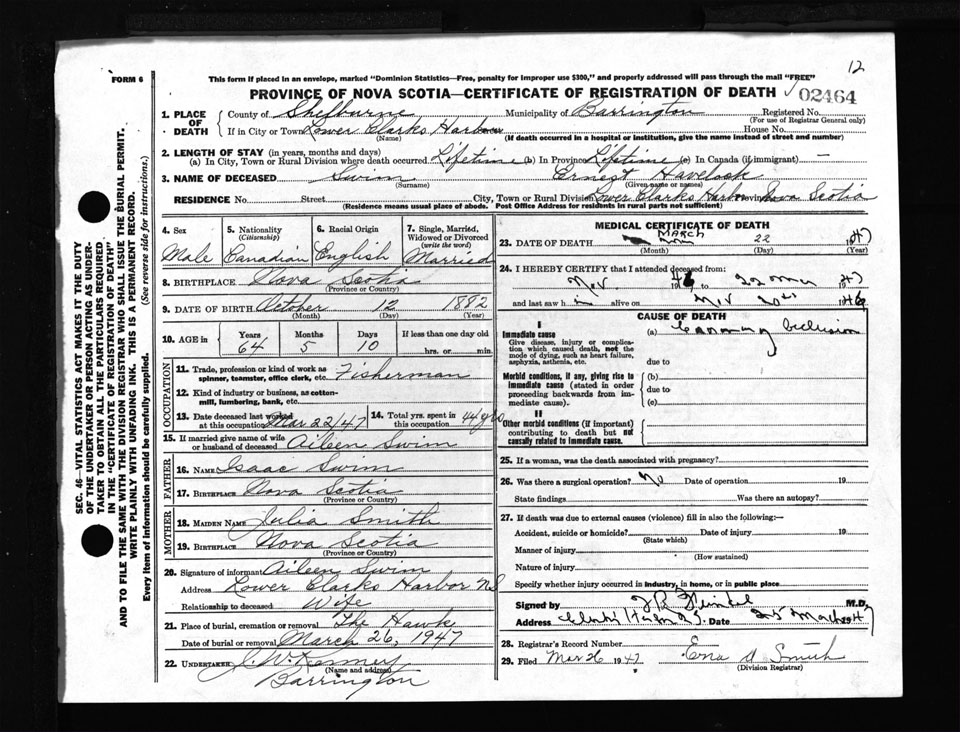 12
FORM 6
This form if placed in an envelope, marked "Dominion Statistics—Free, penalty for improper use $300," and properly addressed will pass through the mail "FREE"
PROVINCE OF NOVA SCOTIA—CERTIFICATE OF REGISTRATION OF DEATH
02464
1. PLACE OF DEATH
County of Shelburne Municipality of Barrington Registered No.
(For use of Registrar General only)
If in City or Town Lower Clarks Harbour House No.
(Name) (If death occurred in a hospital or institution, give the name instead of street and number)
2. LENGTH OF STAY (in years, months and days)
(a) In City, Town or Rural Division where death occurred Lifetime (b) In Province Lifetime (c) In Canada (if immigrant) —
3. NAME OF DECEASED Swim Ernest Havelock
(Surname) (Given name or names)
RESIDENCE No. Street City, Town or Rural Division Lower Clarks Harbor Province Nova Scotia
(Residence means usual place of abode. Post Office Address for residents in rural parts not sufficient)
4. Sex
Male
5. Nationality
(Citizenship)
Canadian
6. Racial Origin
English
7. Single, Married, Widowed or Divorced
(write the word)
Married
8. BIRTHPLACE Nova Scotia
(Province or Country)
9. DATE OF BIRTH October 12 1882
(Month) (Day) (Year)
10. AGE in
Years Months Days If less than one day old
64 5 10 hrs. or min.
OCCUPATION
11. Trade, profession or kind of work as
spinner, teamster, office clerk, etc. Fisherman
12. Kind of industry or business, as cotton-
mill, lumbering, bank, etc.
13. Date deceased last worked
at this occupation Mar 22/47
14. Total yrs. spent in
this occupation 44 yrs
15. If married give name of wife
or husband of deceased Aileen Swim
FATHER
16. NAME Isaac Swim
17. BIRTHPLACE Nova Scotia
(Province or Country)
MOTHER
18. MAIDEN NAME Julia Smith
19. BIRTHPLACE Nova Scotia
(Province or Country)
20. Signature of informant Aileen Swim
Address Lower Clarks Harbor NS
Relationship to deceased Wife
21. Place of burial, cremation or removal The Hawk
Date of burial or removal March 26, 1947
22. UNDERTAKER J. W. Kenney
(Name and address)
Barrington
MEDICAL CERTIFICATE OF DEATH
23. DATE OF DEATH MARCH 22 1947
(Month) (Day) (Year)
24. I HEREBY CERTIFY that I attended deceased from:
Nov 1946 to 22 1947
and last saw h alive on Nov 20th 1946
CAUSE OF DEATH
I
Immediate cause
Give disease, injury or complica-
tion which caused death, not the
mode of dying, such as heart failure,
asphyxia, asthenia, etc.
(a) Coronary Occlusion
due to
Morbid conditions, if any, giving rise to
immediate cause (stated in order
proceeding backwards from im-
mediate cause).
(b)
due to
(c)
II
Other morbid conditions (if important)
contributing to death but not
causally related to immediate cause.
25. If a woman, was the death associated with pregnancy?
26. Was there a surgical operation? No Date of operation 19
State findings Was there an autopsy?
27. If death was due to external causes (violence) fill in also the following:—
Accident, suicide or homicide? Date of injury 19
(State which)
Manner of injury
(How sustained)
Nature of injury
Specify whether injury occurred in industry, in home, or in public place
Signed by M.D.
Address Date 25 March
28. Registrar's Record Number
29. Filed Mar 26 1947 Erna A Smith
(Division Registrar)
SEC. 46—VITAL STATISTICS ACT MAKES IT THE DUTY
OF THE UNDERTAKER OR PERSON ACTING AS UNDER-
TAKER TO OBTAIN ALL THE PARTICULARS REQUIRED
IN THE "CERTIFICATE OF REGISTRATION OF DEATH"
AND TO FILE THE SAME WITH THE DIVISION REGISTRAR WHO SHALL ISSUE THE BURIAL PERMIT.
WRITE PLAINLY WITH UNFADING INK. THIS IS A PERMANENT RECORD.
Every item of information should be carefully supplied. (See reverse side for instructions.)